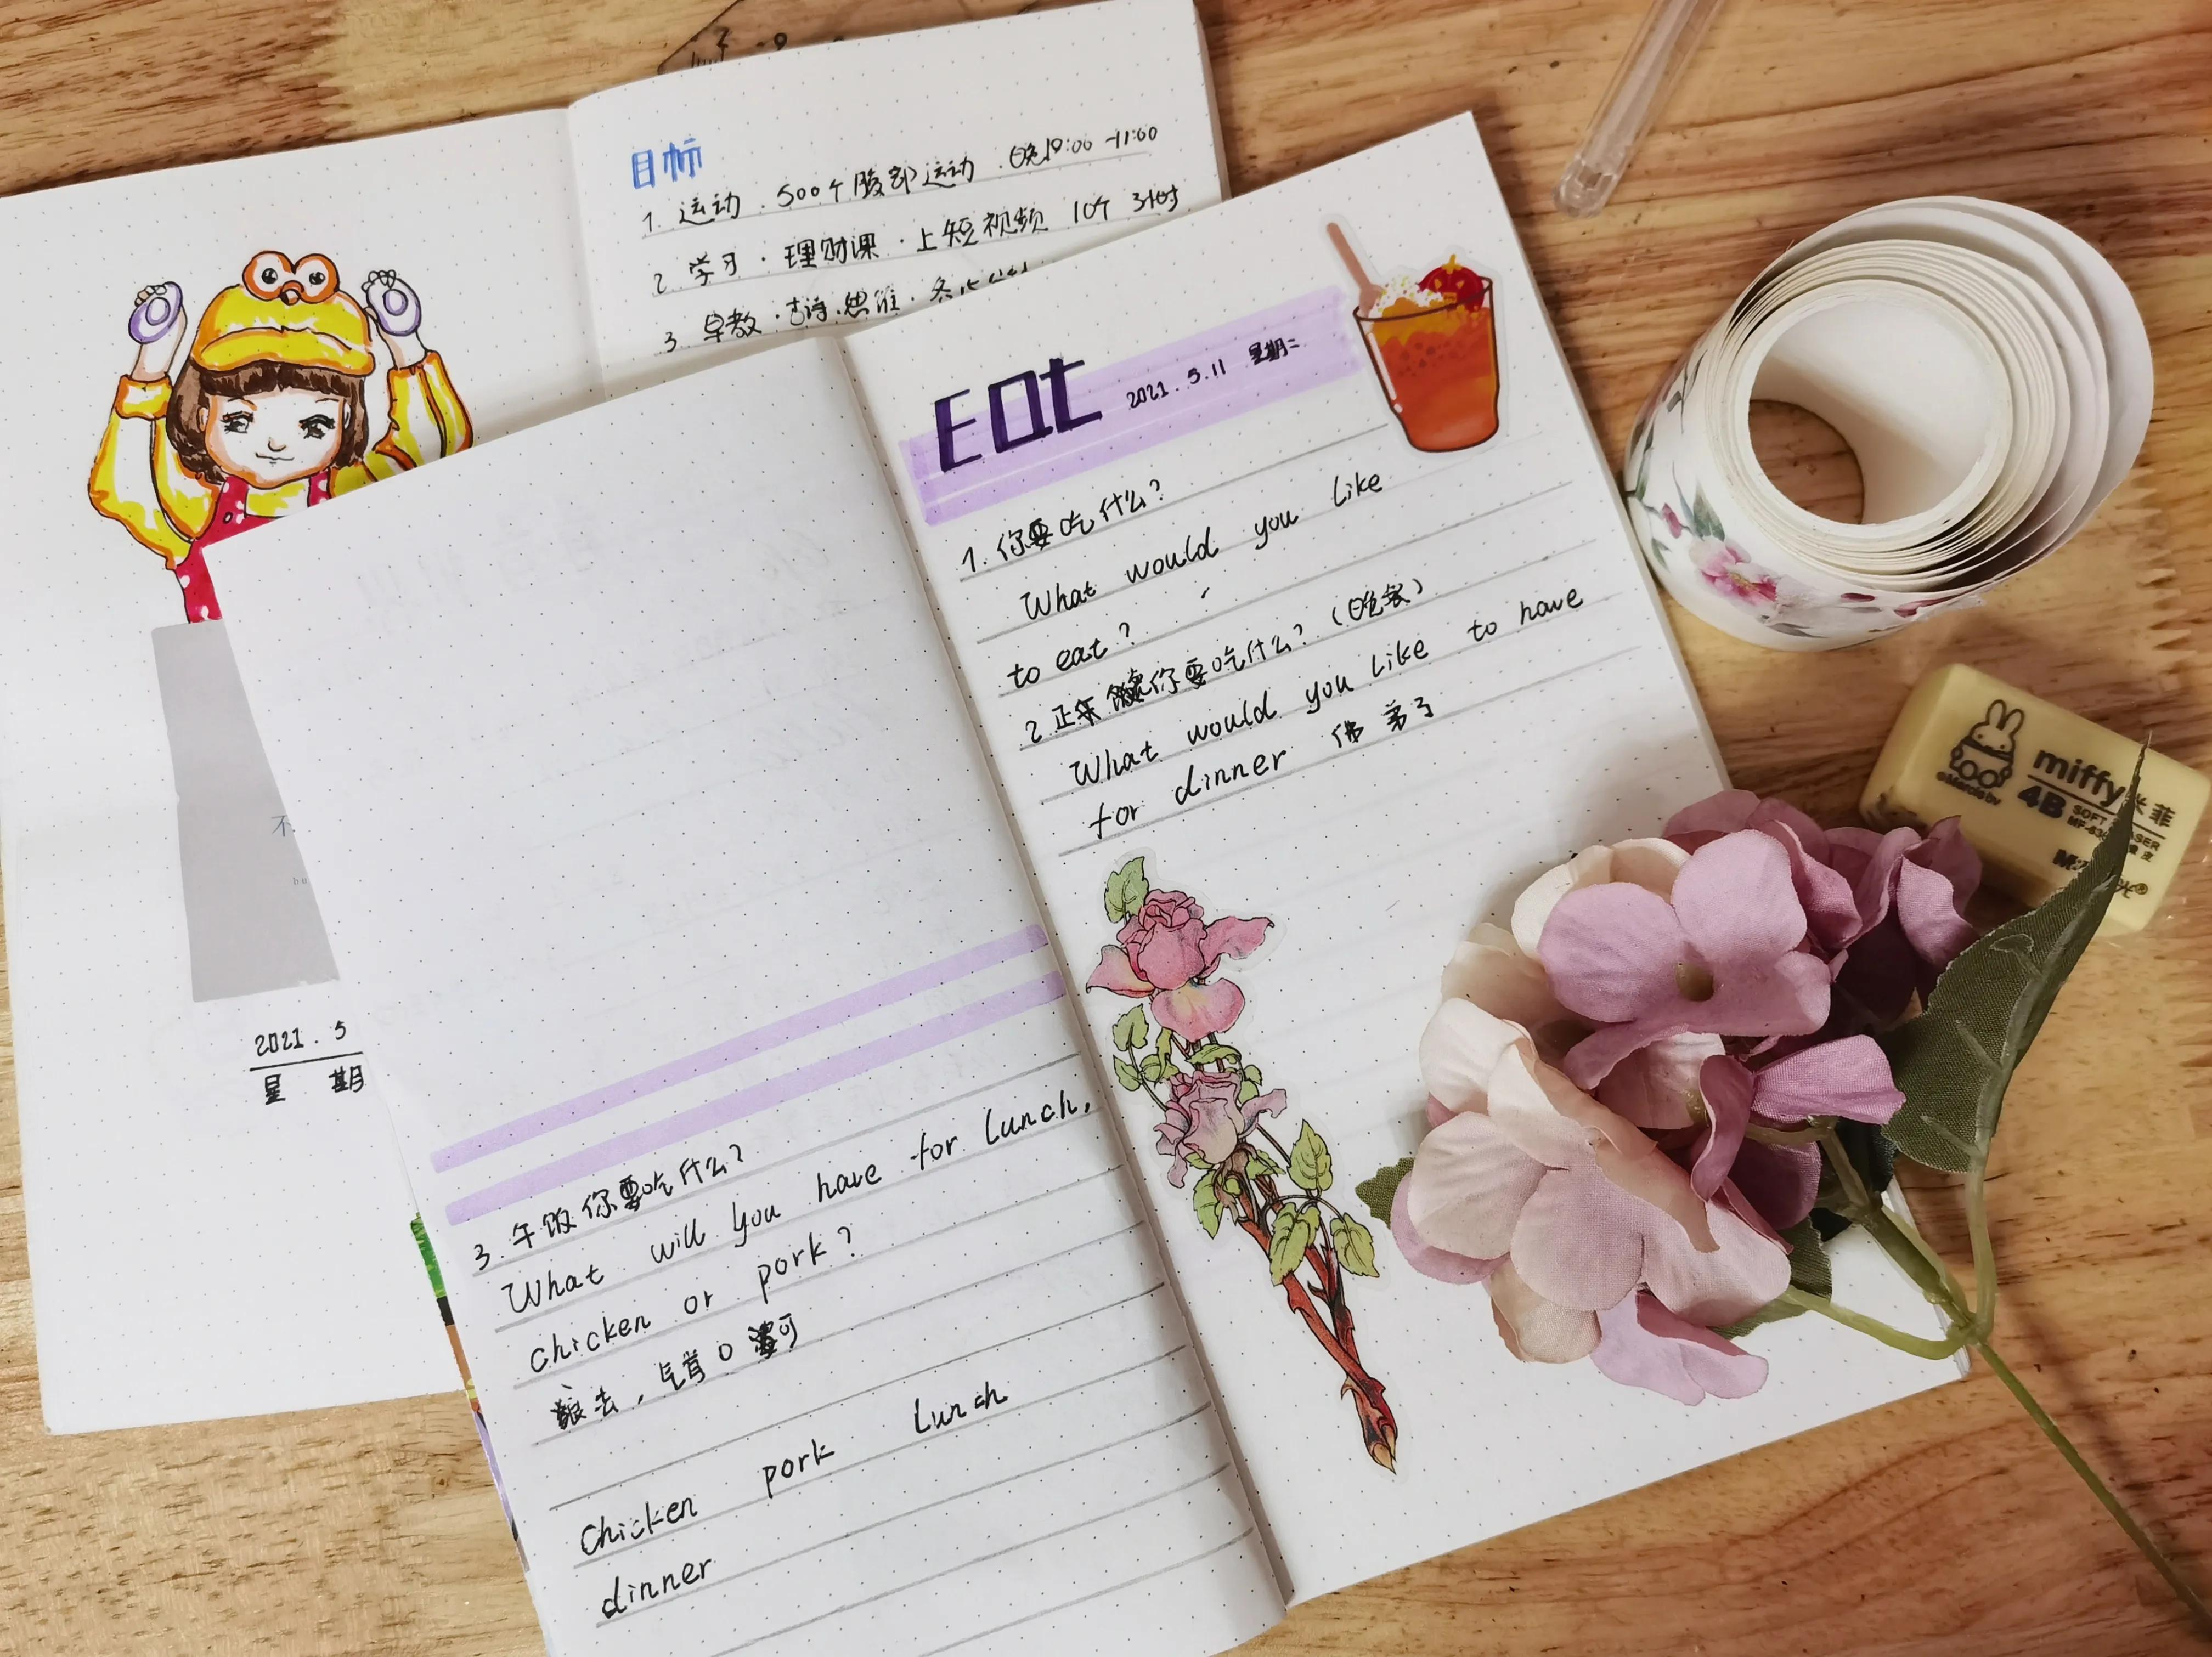 目标
1. 运动 . 500个腹部运动 .
2. 学习 . 理财课 . 上短视频 10个 3小时
3. 早教 . 古诗 . 思维 .
2021 . 5
星 期
不
Eat 2021 . 5.11 星期二
1. 你要吃什么?
What would you like
to eat?
2 正 你要吃什么? (晚餐)
What would you like to have
for dinner 佛 弟子
3. 午饭你要吃什么?
What will you have for lunch,
chicken or pork?
去,
Chicken pork Lunch
dinner
miffy 米菲
4B SOFT